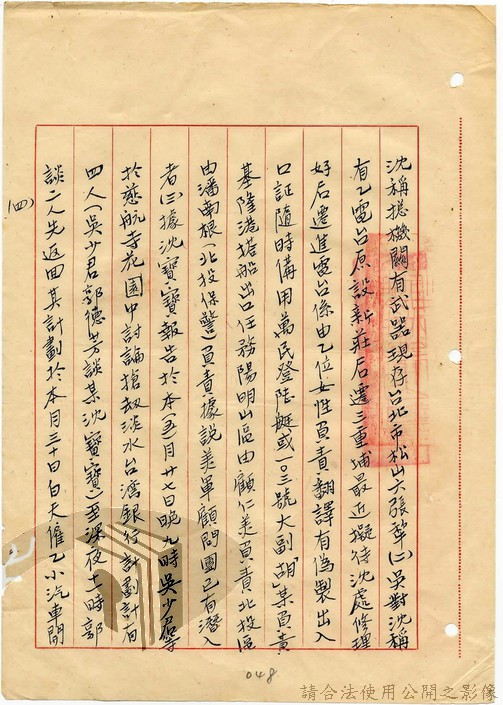 沈稱據機關有武器現存台北市松山六張犂(二)吳對沈稱
有乙電台原設新莊后遷三重埔最近擬待沈處修理
好后遷進電台係由乙位女性負責翻譯有偽製出入
口証隨時備用萬民登陸艇或一〇三號大副「胡」某負責
基隆港搭船出口任務陽明山區由顧仁美負責北投區
由潘南根(北投保警)負責據說美軍顧問團已有潛入
者(三)據沈寶寶報告於本(五)月廿七日晚九時吳少君等
於慈航寺花園中討論搶劫淡水台灣銀行計劃計有
四人(吳少君郭德芳談某沈寶寶)至深夜十一時郭
談二人先返回其計劃於本月三十日白天僱乙小汽車開
(四)
048
請合法使用公開之影像